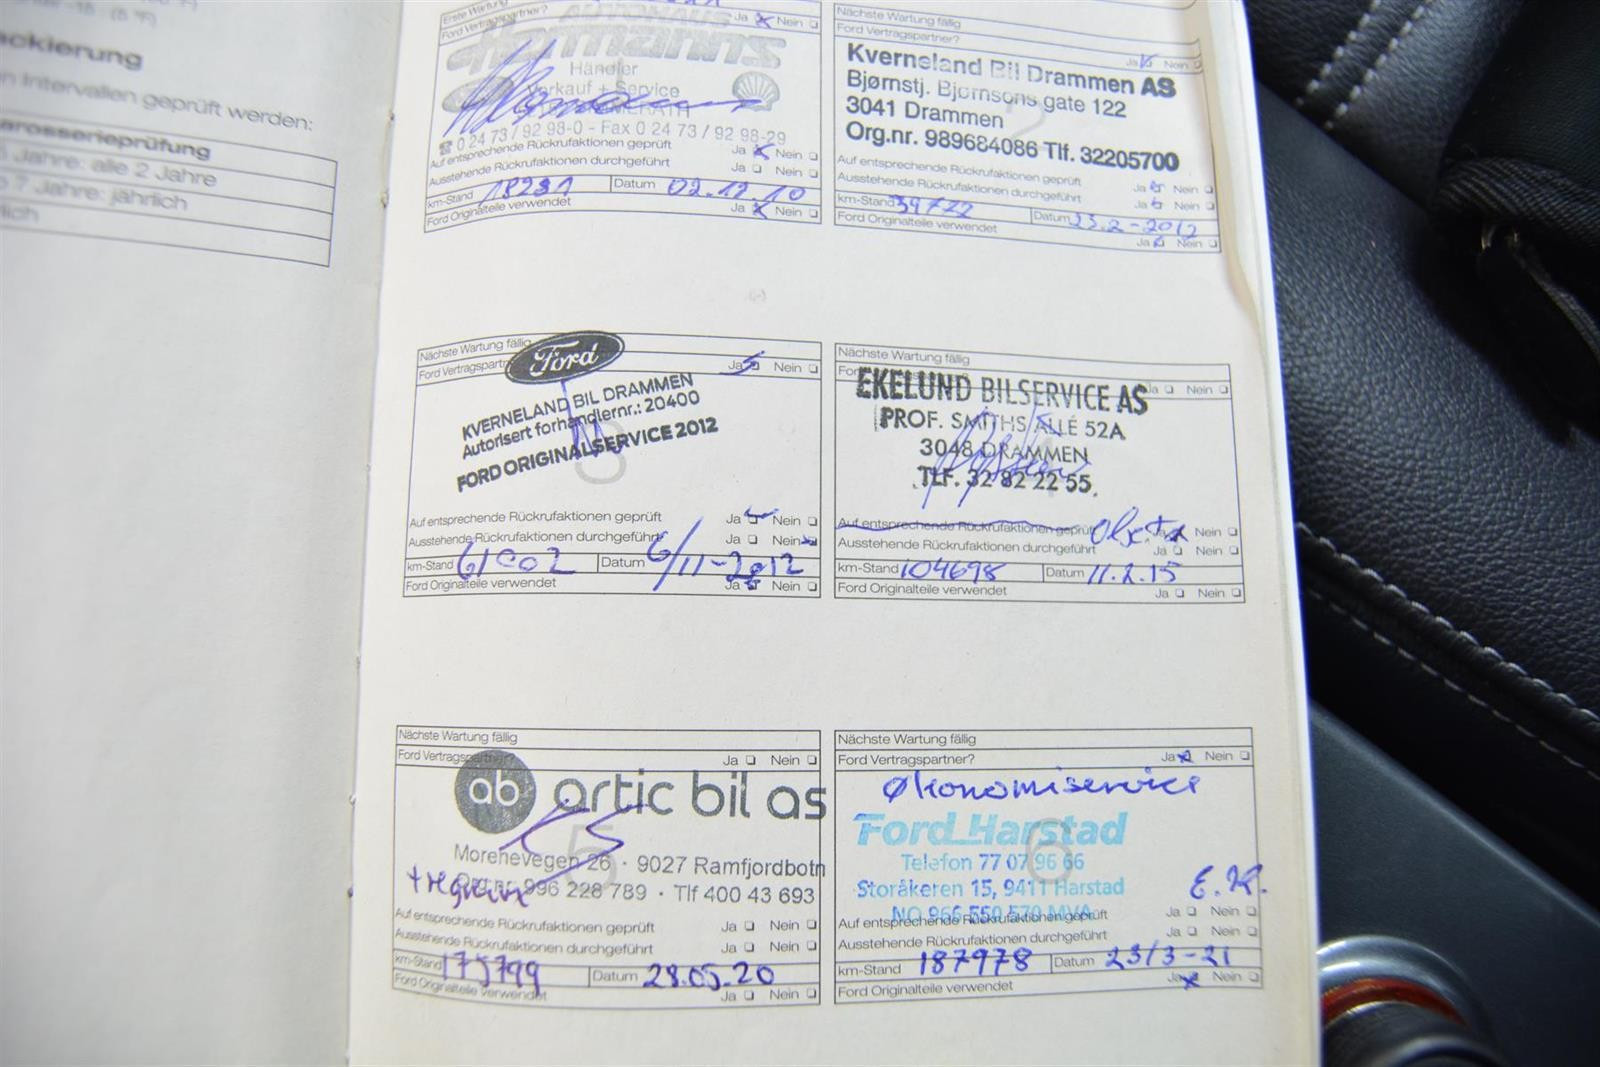 ackierung
n Intervallen geprüft werden:
arosserieprüfung
Jahre: alle 2 Jahre
7 Jahre: jährlich
rlich
Erste Wartung
Ford Vertragspartner? Ja Nein
AUTOHAUS
Hermanns
Händler
Verkauf + Service
0 24 73 / 92 98-0 - Fax 0 24 73 / 92 98-29
Auf entsprechende Rückrufaktionen geprüft Ja Nein
Ausstehende Rückrufaktionen durchgeführt Ja Nein
km-Stand 18231 Datum 02.12.10
Ford Originalteile verwendet Ja Nein
Nächste Wartung fällig
Ford Vertragspartner? Ja Nein
Kverneland Bil Drammen AS
Bjørnstj. Bjørnsons gate 122
3041 Drammen
Org.nr. 989684086 Tlf. 32205700
2
Auf entsprechende Rückrufaktionen geprüft Ja Nein
Ausstehende Rückrufaktionen durchgeführt Ja Nein
km-Stand 39772 Datum 23.2-2012
Ford Originalteile verwendet Ja Nein
Nächste Wartung fällig
Ford Vertragspartn Ja Nein
Ford
KVERNELAND BIL DRAMMEN
Autorisert forhandlernr.: 20400
FORD ORIGINALSERVICE 2012
3
Auf entsprechende Rückrufaktionen geprüft Ja Nein
Ausstehende Rückrufaktionen durchgeführt Ja Nein
km-Stand 61002 Datum 6/11-2012
Ford Originalteile verwendet Ja Nein
Nächste Wartung fällig
For Ja Nein
EKELUND BILSERVICE AS
PROF. SMITHS ALLÉ 52A
3048 DRAMMEN
TLF. 32 82 22 55.
4
Auf entsprechende Rückrufaktionen geprüft Ja Nein
Ausstehende Rückrufaktionen durchgeführt Ja Nein
km-Stand 104698 Datum 11.2.15
Ford Originalteile verwendet Ja Nein
Nächste Wartung fällig
Ford Vertragspartner? Ja Nein
ab artic bil as
5
Morenevegen 26 · 9027 Ramfjordbotn
Org.nr. 996 228 789 · Tlf 400 43 693
Auf entsprechende Rückrufaktionen geprüft Ja Nein
Ausstehende Rückrufaktionen durchgeführt Ja Nein
km-Stand 175799 Datum 28.05.20
Ford Originalteile verwendet Ja Nein
Nächste Wartung fällig
Ford Vertragspartner? Ja Nein
Økonomiservice
Ford Harstad
6
Telefon 77 07 96 66
Storåkeren 15, 9411 Harstad E.K.
NO 966 550 570 MVA
Auf entsprechende Rückrufaktionen geprüft Ja Nein
Ausstehende Rückrufaktionen durchgeführt Ja Nein
km-Stand 187978 Datum 23/3-21
Ford Originalteile verwendet Ja Nein